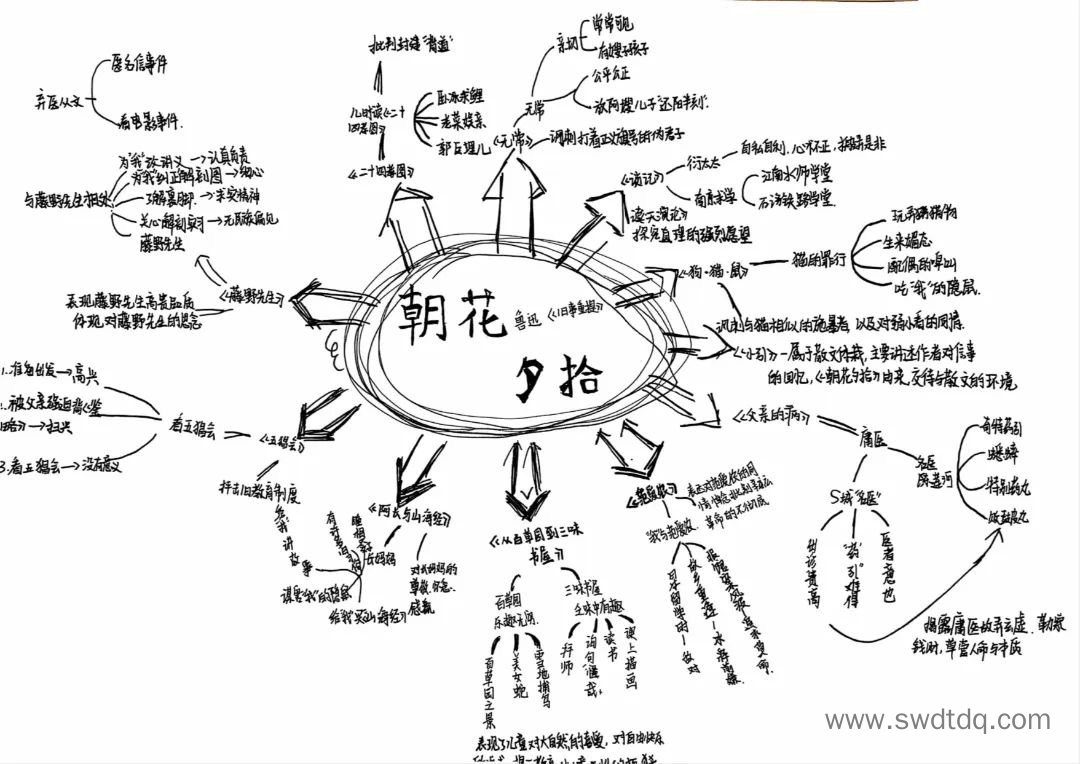 朝花
夕拾
鲁迅《旧事重提》
《小引》—属于散文体裁,主要讲述作者对
的回忆,《朝花夕拾》由来,交待与散文的环境
《狗·猫·鼠》
猫的罪行
生来媚态
配偶的嗥叫
吃“我”的隐鼠.
讽刺与猫相似的施暴者,以及对弱小者的同情.
《琐记》
衍太太
自私自利,心术不正,搬弄是非
南京求学
江南水师学堂
矿路学堂
探究真理的强烈愿望
《无常》
讽刺打着正义旗号的伪君子
无常
亲切
常常可见
有嫂子孩子
公平公正
放阿嫂儿子“还阳半刻”.
《二十四孝图》
儿时读《二十
四孝图》
批判封建“孝道”
卧冰求鲤
老莱娱亲
郭巨埋儿
《藤野先生》
藤野先生
与藤野先生相处
为“我”改讲义→认真负责
为“我”纠正解剖图→细心
了解裹脚→求实精神
关心解剖实习→无民族偏见
弃医从文
匿名信事件
看电影事件.
表现藤野先生高贵品质
体现对藤野先生的思念
《五猖会》
看五猖会
1.准备出发→高兴
被父亲强迫背《鉴
略》→扫兴
3.看五猖会→没有意义
抨击旧教育制度
《阿长与山海经》
长妈妈
给“我”讲故事
谋害“我”的隐鼠
给我买《山海经》
对长妈妈的
尊敬、怀念、
感激
《从百草园到三味
书屋》
百草园
乐趣无穷
百草园之景
美女蛇
雪地捕鸟
三味书屋
乏味中有趣
拜师
读书
课上描画
表现了儿童对大自然的喜爱,对自由快乐
《范爱农》
“我”与范爱农
日本留学时—敌对
故乡重逢—
《父亲的病》
庸医
S城“名医”
出诊费高
“药引”难得
医者意也
名医
陈莲河
奇特药引
蟋蟀
特别丸药
败鼓皮丸
揭露庸医故弄玄虚、勒索
钱财,草菅人命的本质
www.swdtdq.com